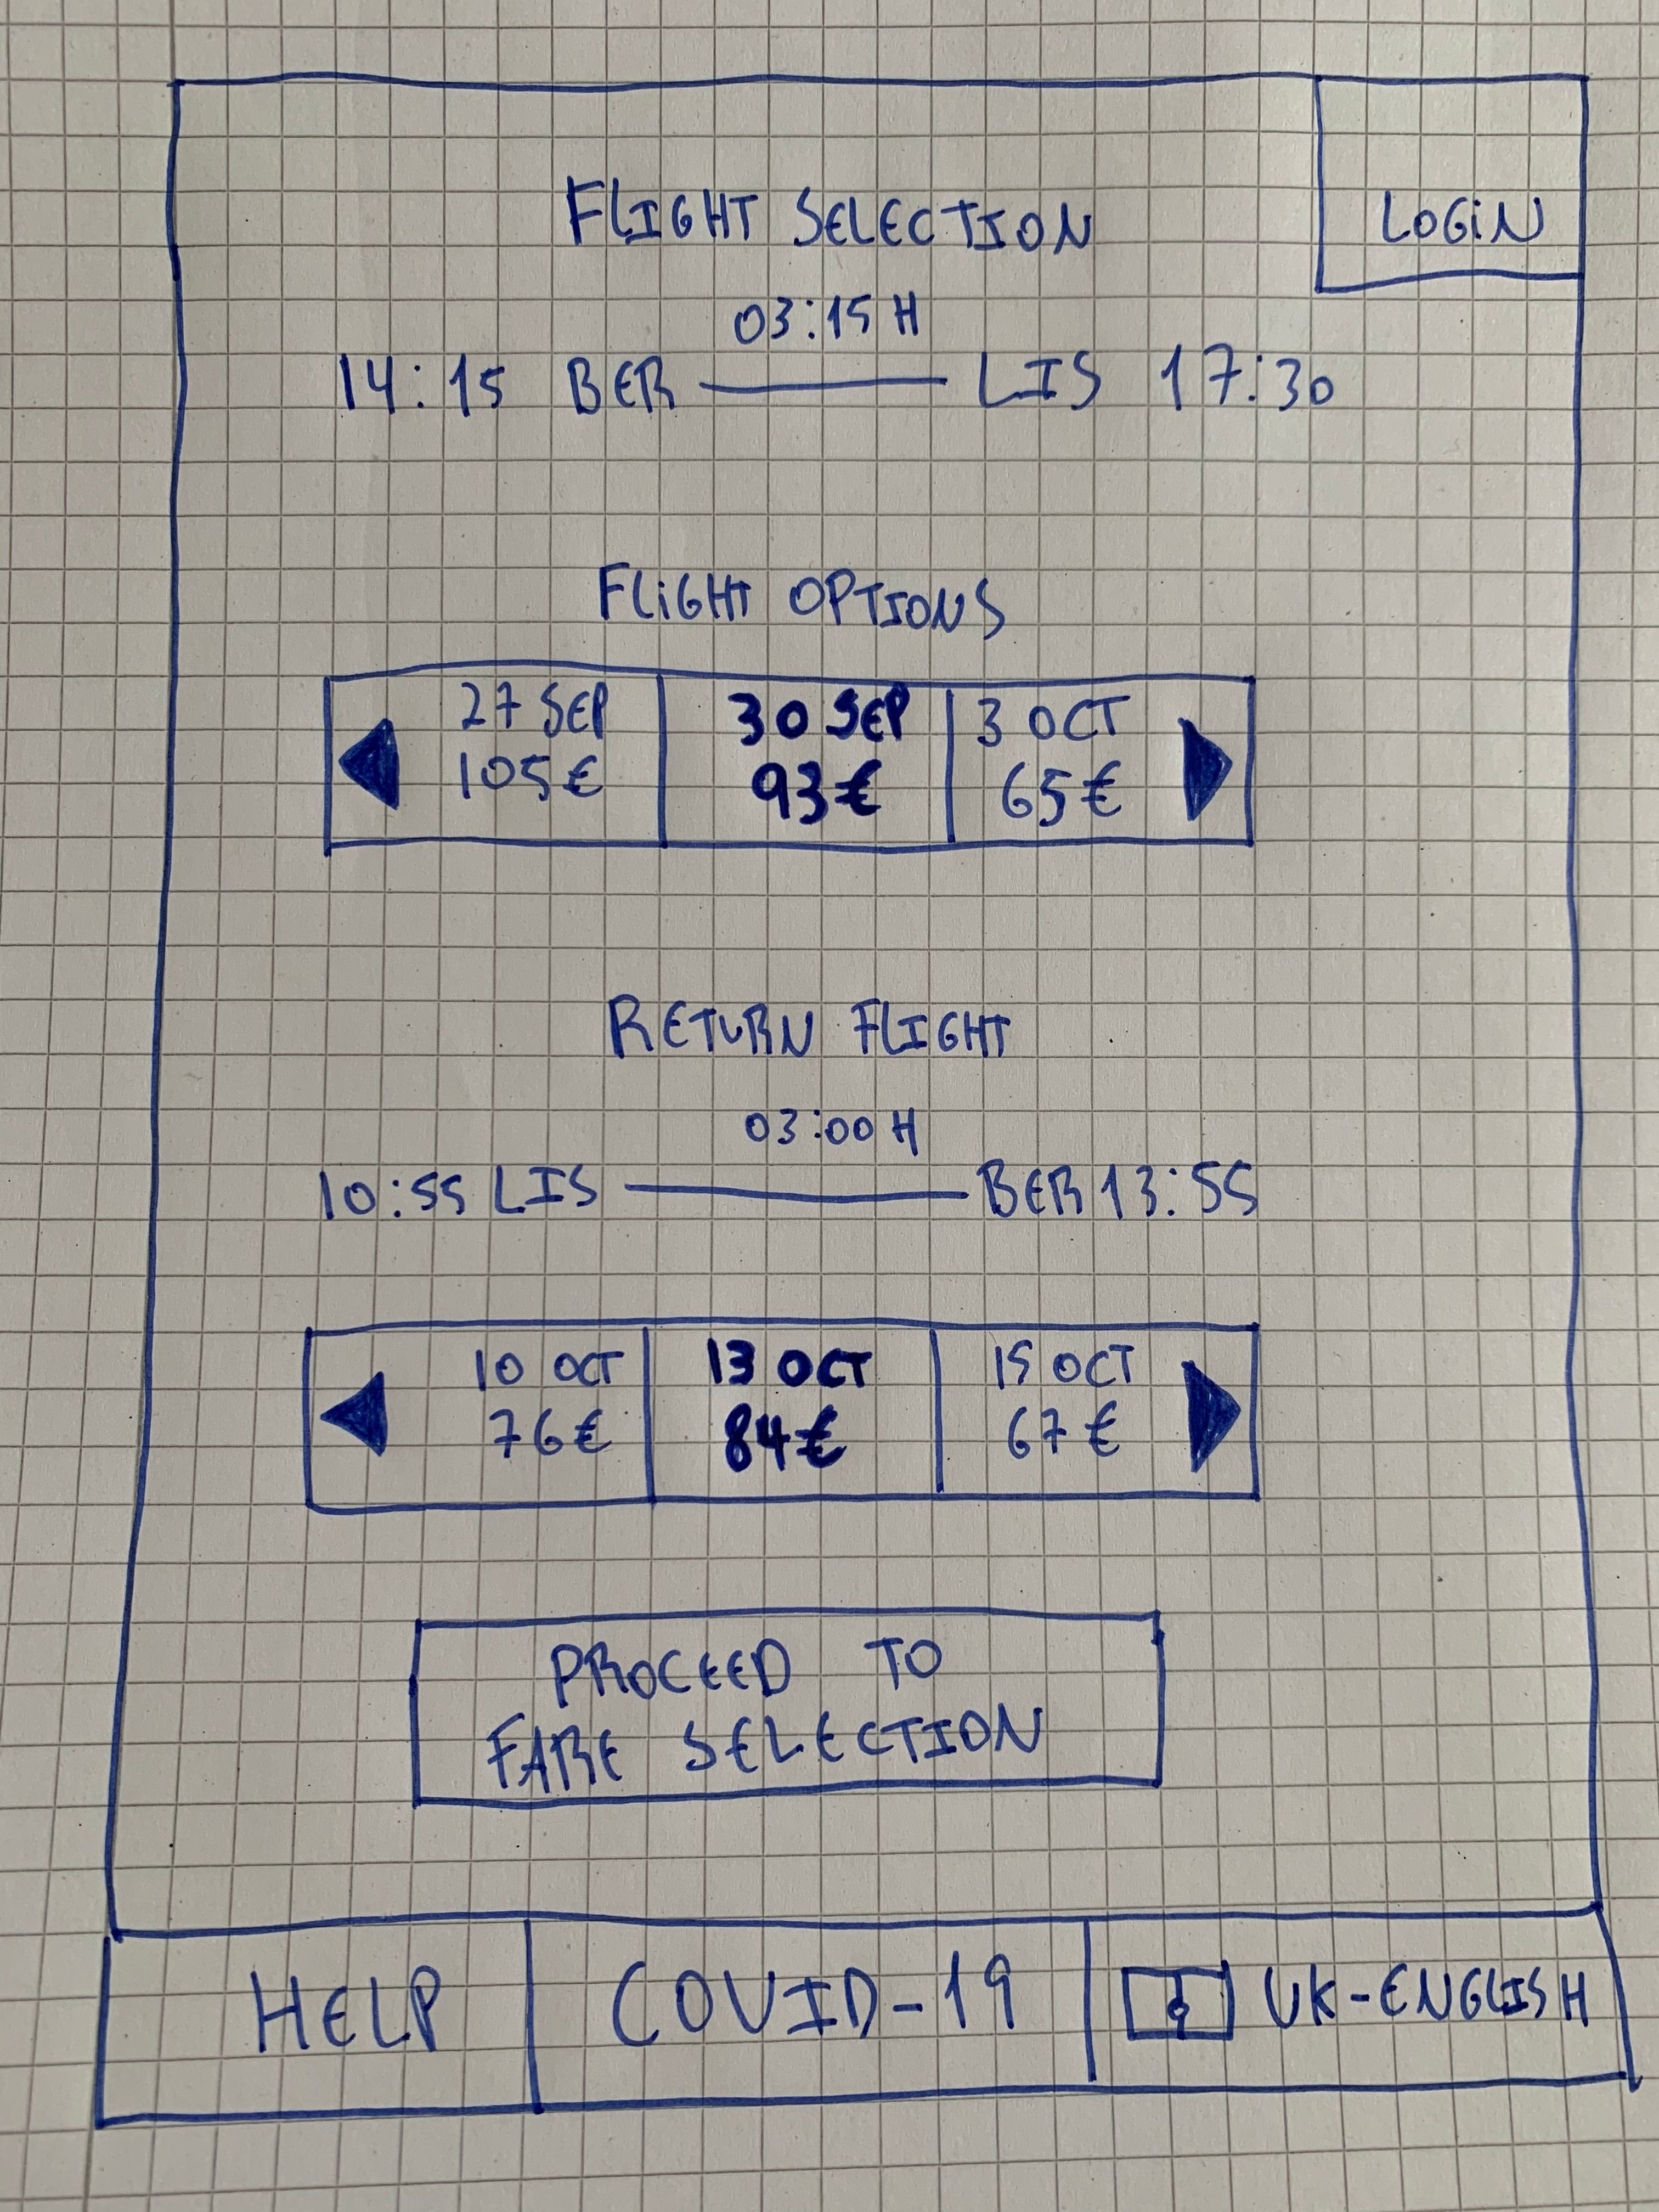 FLIGHT SELECTION
LOGIN
03:15 H
14:15 BER LIS 17:30
FLIGHT OPTIONS
27 SEP 30 SEP 3 OCT
105€ 93€ 65€
RETURN FLIGHT
03:00 H
10:55 LIS BER 13:55
10 OCT 13 OCT 15 OCT
76€ 84€ 67€
PROCEED TO
FARE SELECTION
HELP COVID-19 UK-ENGLISH